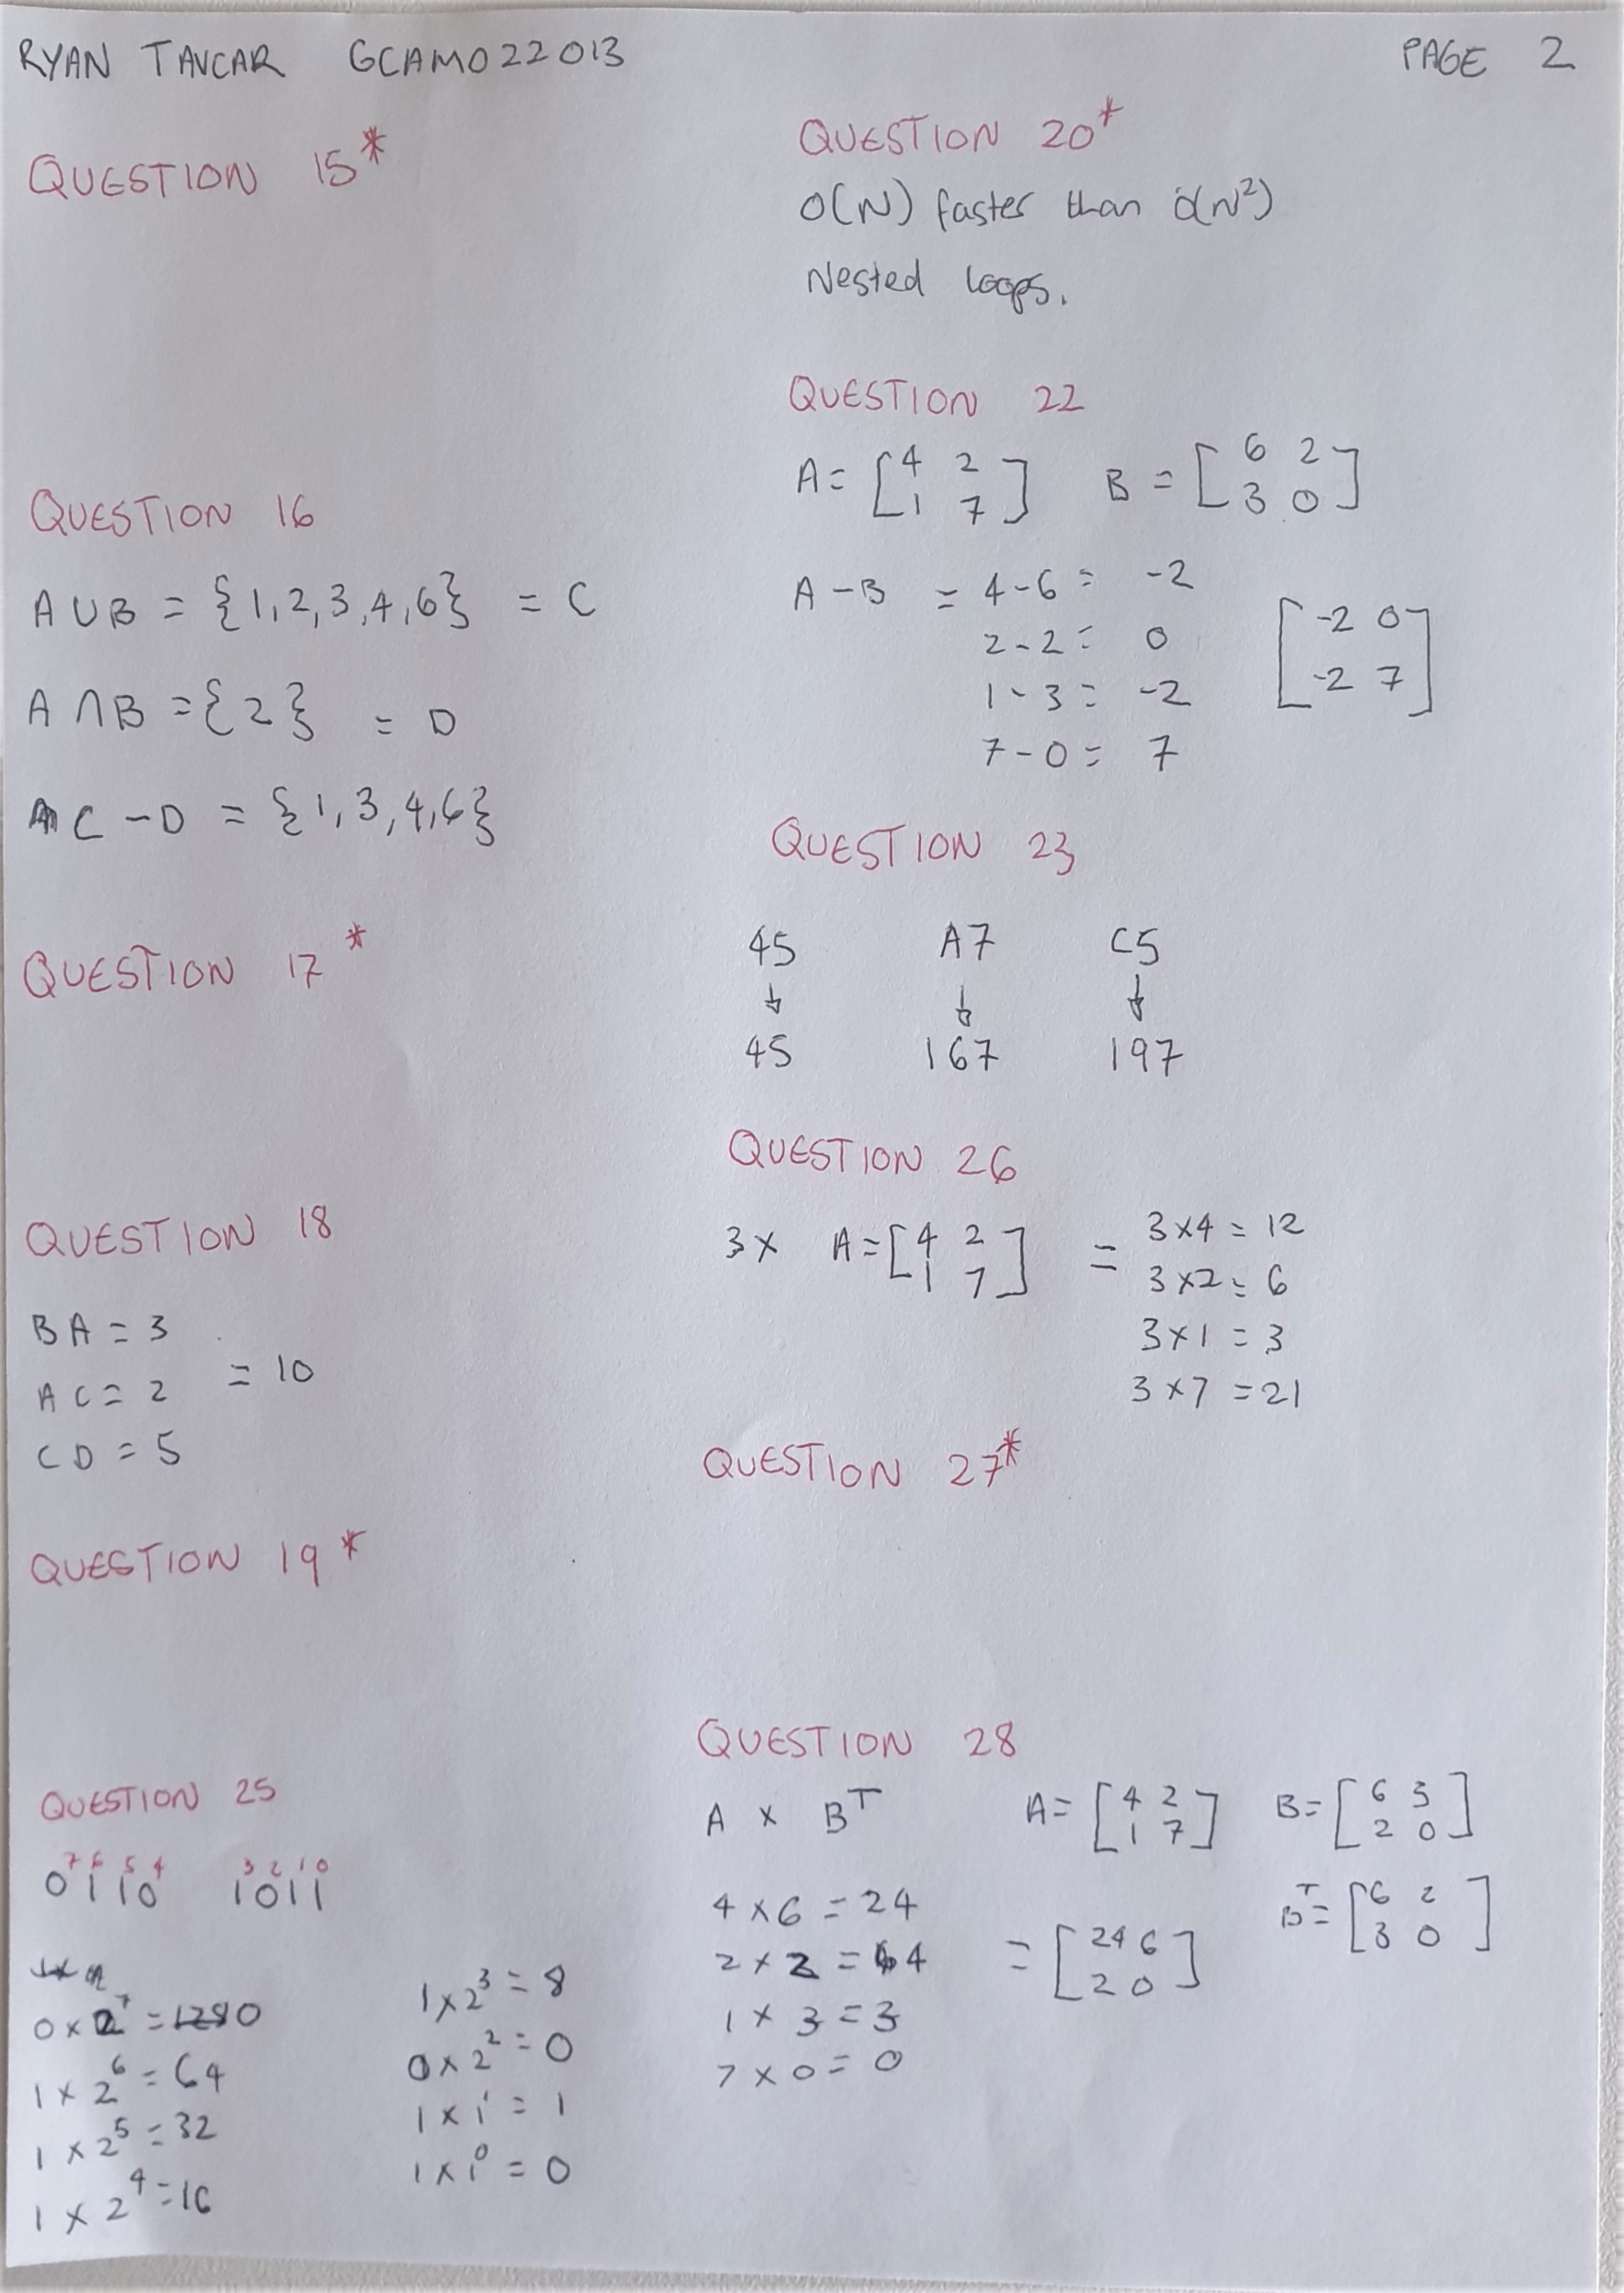 RYAN TAVCAR GCAM022013 PAGE 2
QUESTION 15*
QUESTION 16
A ∪ B = {1,2,3,4,6} = C
A ∩ B = {2} = D
C - D = {1,3,4,6}
QUESTION 17*
QUESTION 18
BA = 3
AC = 2 = 10
CD = 5
QUESTION 19*
QUESTION 25
7 6 5 4 3 2 1 0
0110 1011
0 x 2⁷ = 0
1 x 2⁶ = 64
1 x 2⁵ = 32
1 x 2⁴ = 16
1 x 2³ = 8
0 x 2² = 0
1 x 1¹ = 1
1 x 1⁰ = 0
QUESTION 20*
O(N) faster than O(N²)
Nested loops.
QUESTION 22
A = [4 2 B = [6 2
1 7] 3 0]
A - B = 4 - 6 = -2
2 - 2 = 0 [-2 0
1 - 3 = -2 -2 7]
7 - 0 = 7
QUESTION 23
45 A7 C5
↓ ↓ ↓
45 167 197
QUESTION 26
3 x A = [4 2 = 3 x 4 = 12
1 7] 3 x 2 = 6
3 x 1 = 3
3 x 7 = 21
QUESTION 27*
QUESTION 28
A x Bᵀ A = [4 2 B = [6 3
1 7] 2 0]
4 x 6 = 24 Bᵀ = [6 2
2 x 2 = 4 = [24 6 3 0]
1 x 3 = 3 2 0]
7 x 0 = 0